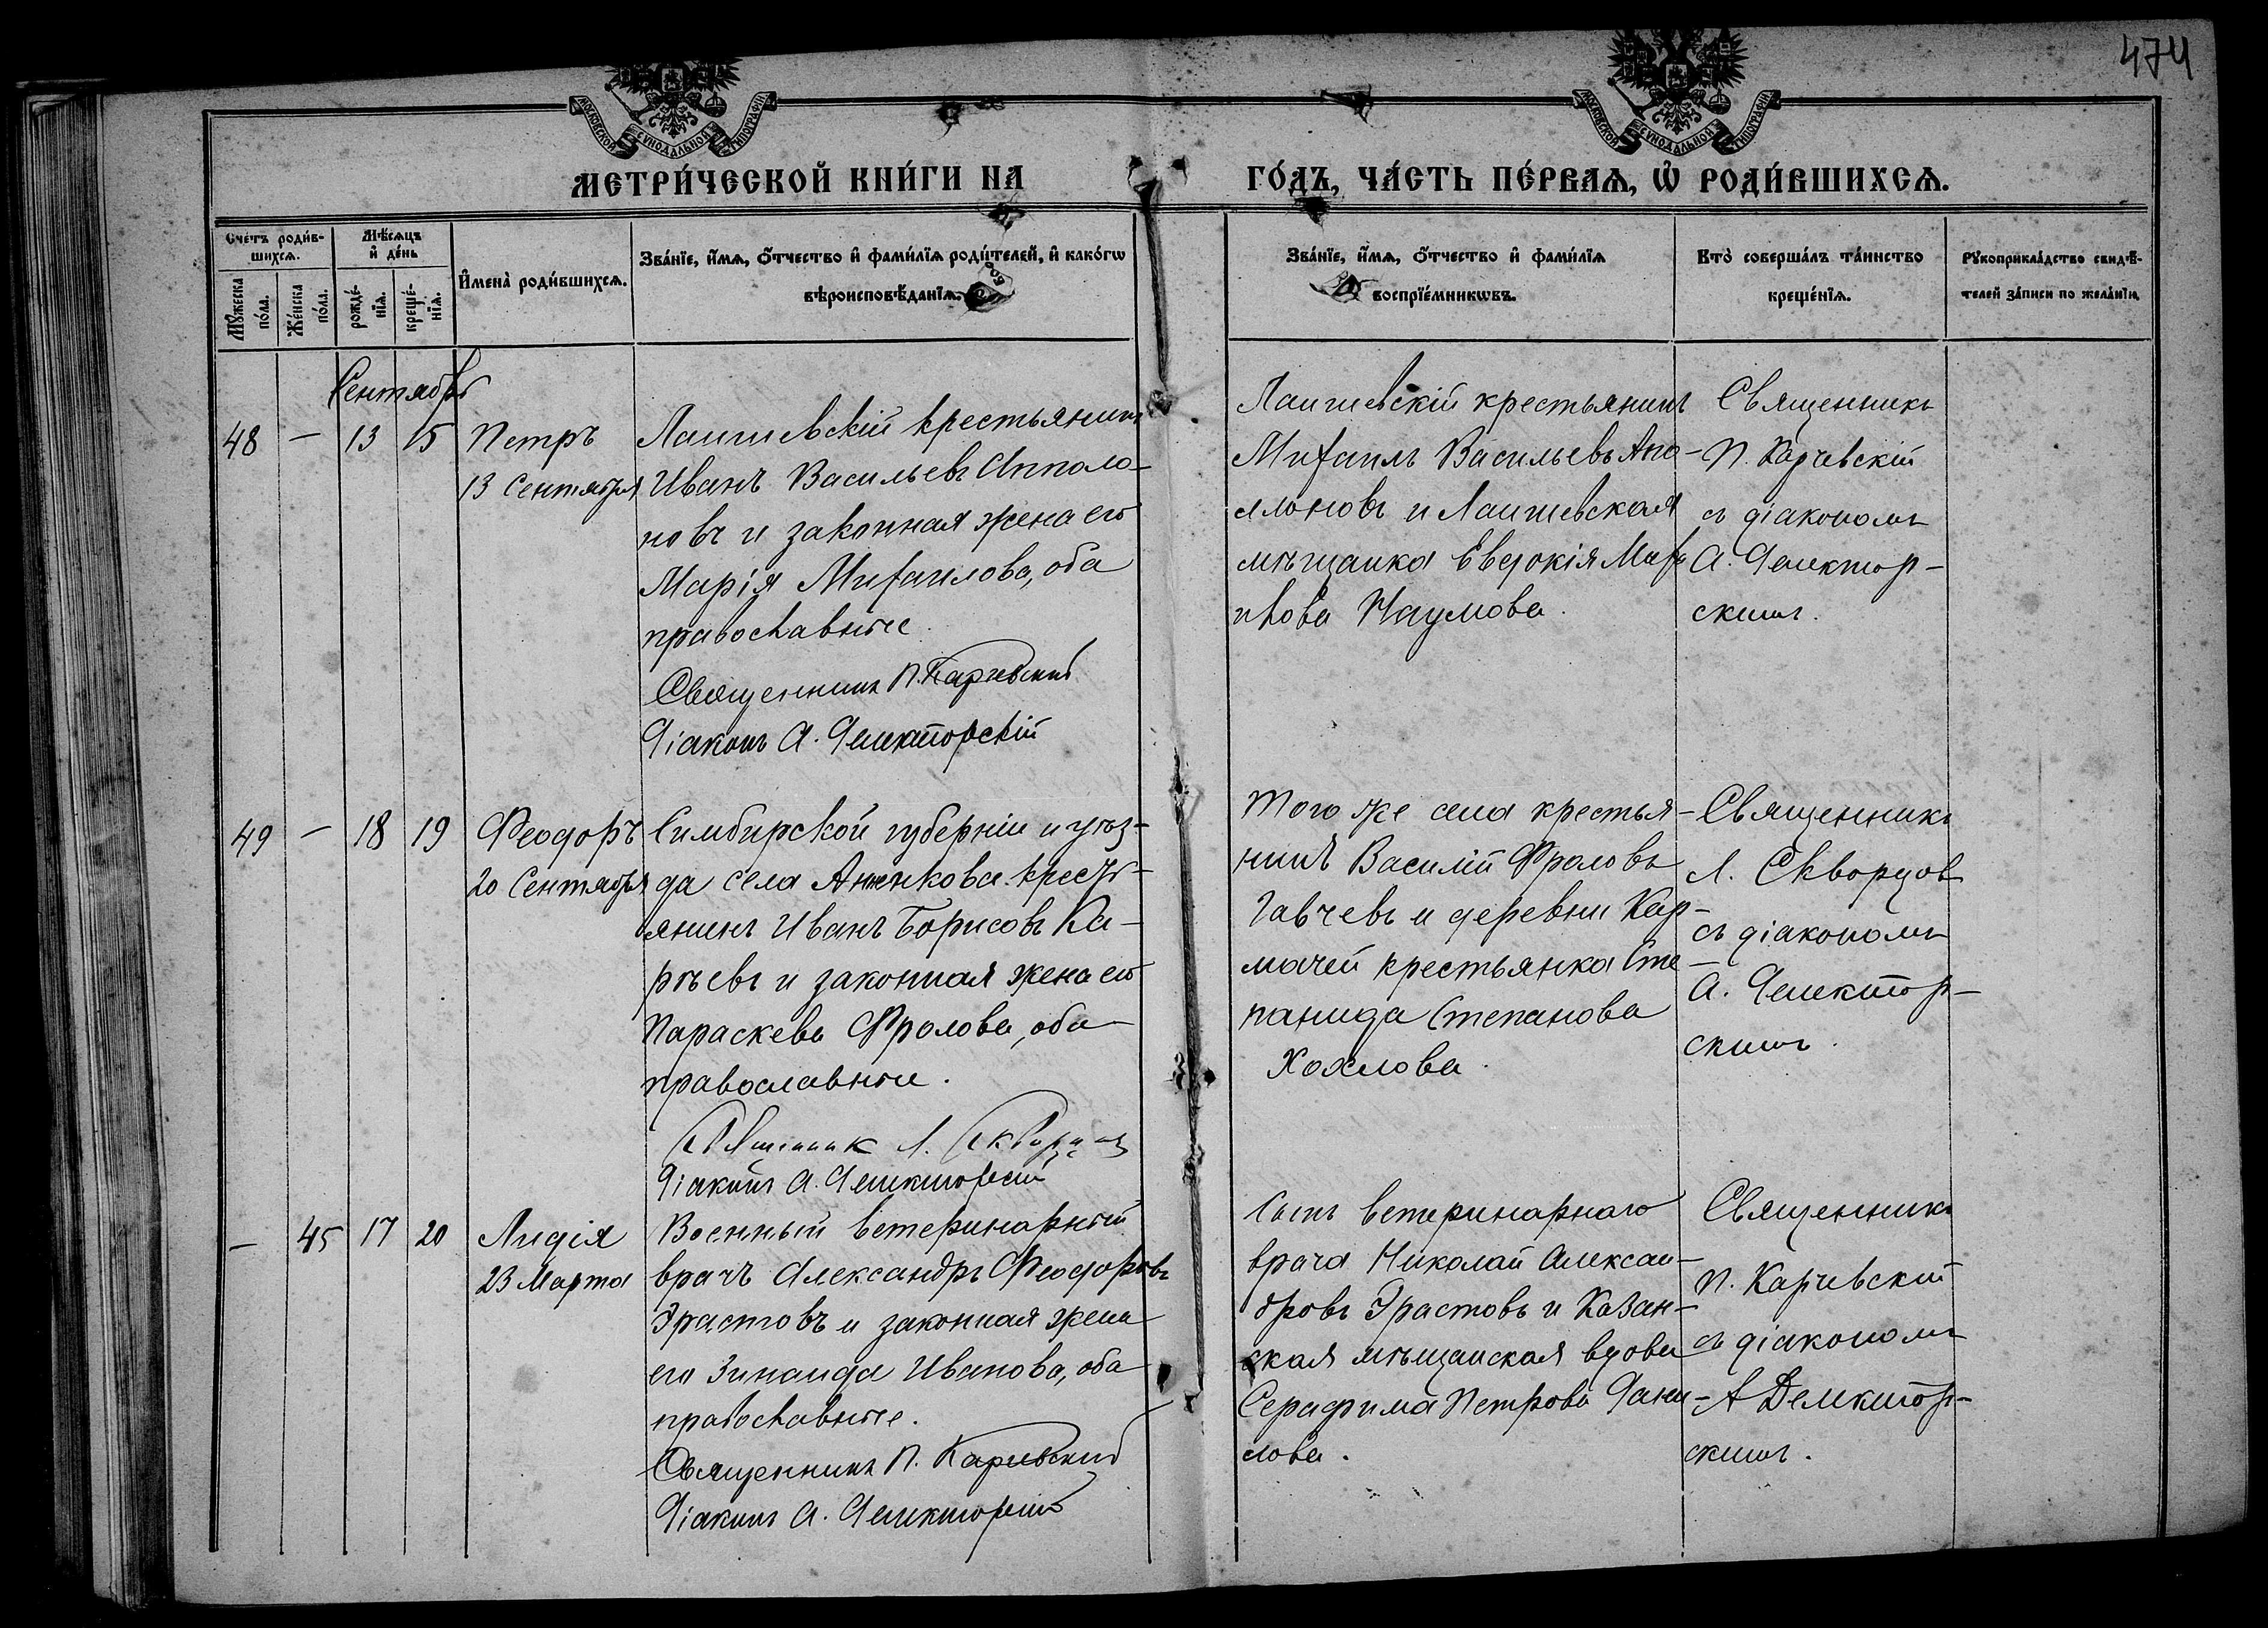 474
МОСКОВСКОЙ СУНОДАЛЬНОЙ ТИПОГРАФІИ
МОСКОВСКОЙ СУНОДАЛЬНОЙ ТИПОГРАФІИ
МЕТРИ́ЧЕСКОЙ КНИ́ГИ НА ГО́ДЪ, ЧА́СТЬ ПЕ́РВАЯ, Ѡ҆ РОДИ́ВШИХСЯ.
Сче́тъ роди́в-
шихся.
Мѣ́сяцъ
и҆ де́нь
Му́жеска
по́ла.
Же́нска
по́ла.
рожде́-
нїя.
креще́-
нїя.
И҆мена̀ роди́вшихся.
Зва́нїе, и҆́мя, ѻ҆́тчество и҆ фами́лїя роди́телей, и҆ како́гѡ
вѣроисповѣ́данїя.
Зва́нїе, и҆́мя, ѻ҆́тчество и҆ фами́лїя
воспрїе́мникѡвъ.
Кто̀ соверша́лъ та́инство
креще́нїя.
Рукоприкла́дство свидѣ́-
телей за́писи по жела́нїю.
Сентябрь
48 — 13 15
Петръ
13 Сентября
Лаишевскій крестьянинъ
Иванъ Васильевъ Апполо-
новъ и законная жена его
Марія Михаилова, оба
православные.
Священникъ П. Каревскій
Діаконъ А. Демкторскій
Лаишевскій крестьянинъ
Михаилъ Васильевъ Апо-
ллоновъ и Лаишевская
мѣщанка Евдокія
Наумова.
Священникъ
П. Каревскій
съ діакономъ
А.
скимъ.
49 — 18 19
Феодоръ
20 Сентября
Симбирской губерніи и уѣз-
да села Анненкова кресть-
янинъ Иванъ Борисовъ Ка-
рѣевъ и законная жена его
Параскева Фролова, оба
православные.
Священник Л. Скворцов
Діаконъ А.
Того же села крестья-
нинъ Василій Фроловъ
Гавчевъ и деревни Кар-
мачей крестьянка Сте-
панида Степанова
Хохлова.
Священникъ
Л. Скворцовъ
съ діакономъ
А.
скимъ.
— 45 17 20
Лидія
23 Марта
Военный ветеринарный
врачъ Александръ Феодоровъ
Эрастовъ и законная жена
его Зинаида Иванова, оба
православные.
Священникъ П. Каревскій
Діаконъ А.
Сынъ ветеринарнаго
врача Николай Алексан-
дровъ Эрастовъ и Казан-
ская мѣщанская вдова
Серафима Петрова Дани-
лова.
Священникъ
П. Каревскій
съ діакономъ
А
скимъ.